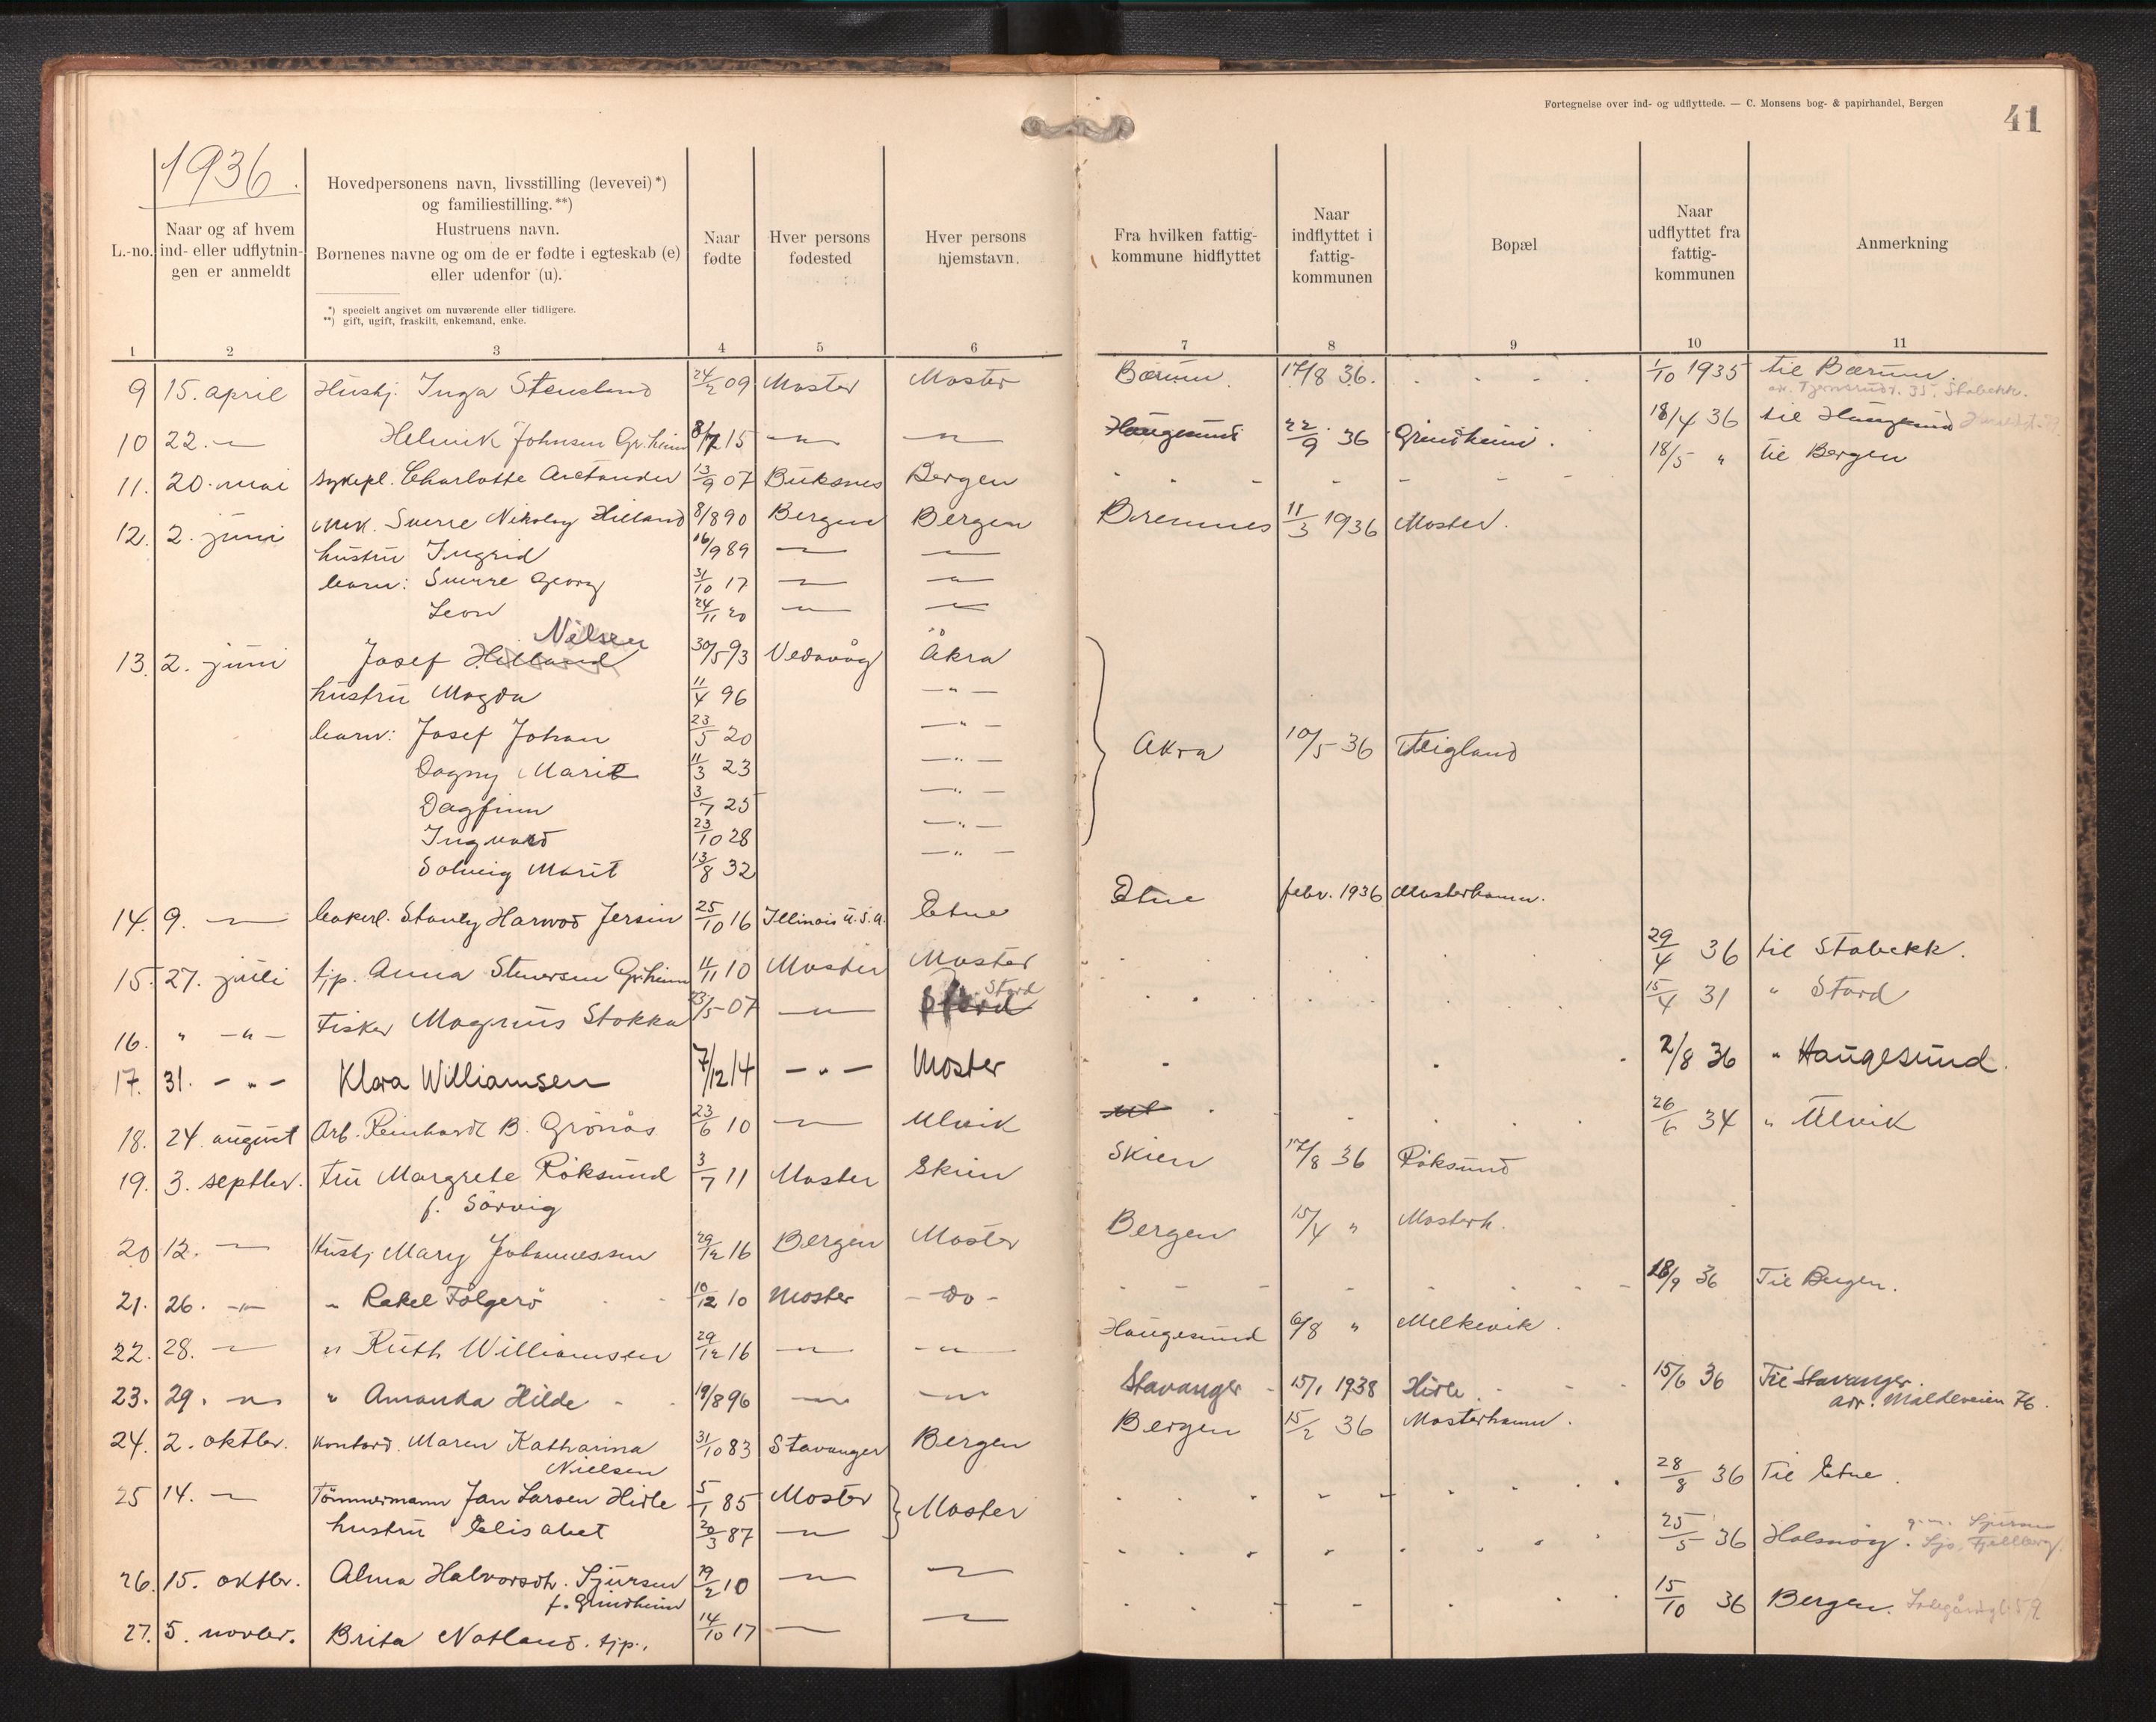 Fortegnelse over ind- og udflyttede. — C. Monsens bog- & papirhandel, Bergen
41
1936.
L.-no.
Naar og af hvem
ind- eller udflytnin-
gen er anmeldt
Hovedpersonens navn, livsstilling (levevei)*)
og familiestilling.**)
Hustruens navn.
Børnenes navne og om de er fødte i egteskab (e)
eller udenfor (u).
*) specielt angivet om nuværende eller tidligere.
**) gift, ugift, fraskilt, enkemand, enke.
Naar
fødte
Hver persons
fødested
Hver persons
hjemstavn.
Fra hvilken fattig-
kommune hidflyttet
Naar
indflyttet i
fattig-
kommunen
Bopæl
Naar
udflyttet fra
fattig-
kommunen
Anmerkning
1 2 3 4 5 6 7 8 9 10 11
9 15. april Hushj. Inga Stensland 24/2 09 Moster Moster Bærum. 17/8 36. 1/10 1935 til Bærum.
35. Stabekk.
10 22. — Helmik Johnsen Gr.heim 15 — — Haugesund 22/9 36 Grindheim. 18/4 36 til Haugesund
11. 20. mai sykepl. Charlotte Arctander 13/9 07 Buksnes Bergen 18/5 " til Bergen
12. 2. juni mek. Sverre Nikolay Hilland 8/8 90 Bergen Bergen Bremnes 11/3 1936 Moster.
hustru Ingrid 16/9 89 — —
barn: Sverre Georg 31/10 17 — —
Leon 24/11 20 — —
Nilsen
13. 2. juni Josef Helland 30/5 93 Vedavåg Åkra
hustru Magda 11/4 96 — " —
barn: Josef Johan 23/5 20 — " —
Akra 10/5 36 Teigland
Dagny Marit 11/3 23 — " —
Dagfinn 3/7 25 — " —
Ingvard 23/10 28 — " —
Solveig Marit 13/8 32 — " —
14. 9. — bakerl. Stanly Harwod Jersin 25/10 16 Illinois U.S.A. Etne Etne febr. 1936 Mosterhamn.
15. 27. juli tjp. Anna Stenersen Gr.heim 11/11 10 Moster Moster 29/4 36 til Stabekk.
Stord
16. " — " — Fisker Magnus Stokka 23/5 07 — Stord 15/4 31 " Stord
17. 31. — " — Klara Williamsen 7/12 14 — " — Moster 2/8 36 " Haugesund.
18. 24. august Arb. Reinhardt B. Grönås 23/6 10 — Ulvik Ul 26/6 34 " Ulvik
19. 3. septbr. Fru Margrete Röksund 3/7 11 Moster Skien Skien 17/8 36 Röksund
f. Sörvig
20 12. — Hushj Mary Johannessen 29/12 16 Bergen Moster Bergen 15/4 " Mosterh.
21. 26. — " — " Rakel Folgerö 10/12 10 Moster - do - 18/9 36 Til Bergen.
22. 28. — " Ruth Williamsen 29/12 16 — — " — Haugesund 6/8 " Melkevik.
23. 29. — " Amanda Hilde 19/8 96 — — Stavanger 15/1 1938 Hisle. 15/6 36 Til Stavanger.
adr. Maldeveien 76.
24. 2. oktbr. Kontord. Maren Katharina 31/10 83 Stavanger Bergen Bergen 15/2 36 Mosterhamn.
Nielsen
25 14. — Tömmermann Jan Larsen Hisle 5/1 85 Moster Moster 28/8 36 Til Etne.
hustru Elisabet 20/3 87 —
26. 15. oktbr. Alma Halvorsdtr. Sjursen 29/2 10 — — 25/5 36 Halsnöy. Sjursen
f. Grindheim
27. 5. novbr. Brita Notland. tjp. 14/10 17 — — 15/10 36 Bergen.